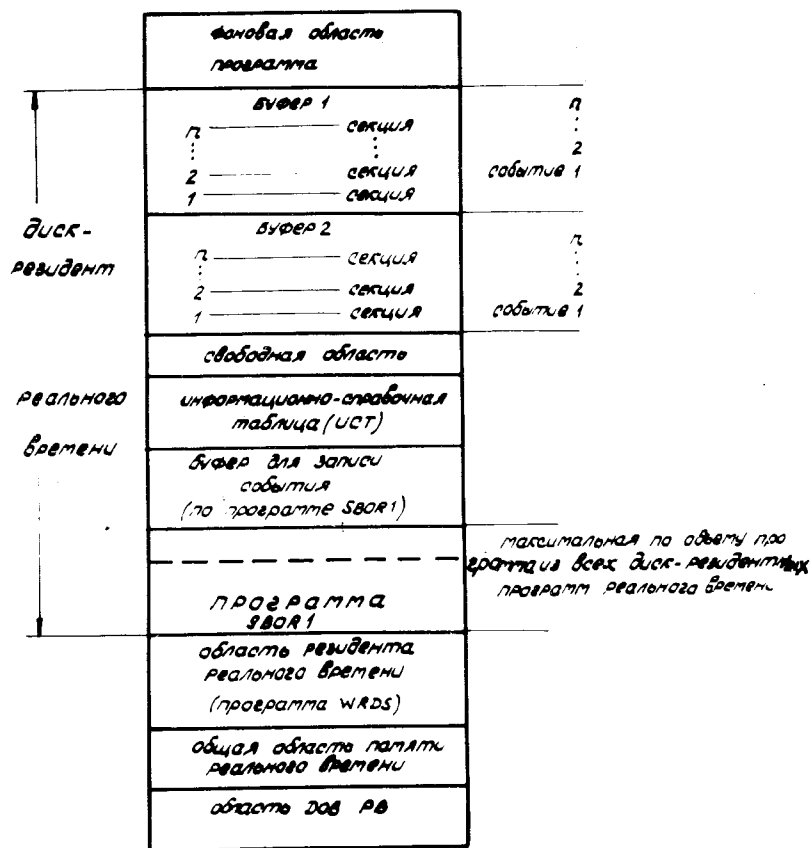 фоновая область
программа
БУФЕР 1
n секция
⋮ ⋮
2 секция
1 секция
n
⋮
2
событие 1
диск-
резидент
БУФЕР 2
n секция
⋮
2 секция
1 секция
n
⋮
2
событие 1
свободная область
реального
времени
информационно-справочная
таблица (ИСТ)
буфер для записи
события
(по программе SBOR1)
максимальная по объему про
грамма из всех диск-резидентных
программ реального времени
программа
SBOR1
область резидента
реального времени
(программа WRDS)
общая область памяти
реального времени
область ДОВ РВ